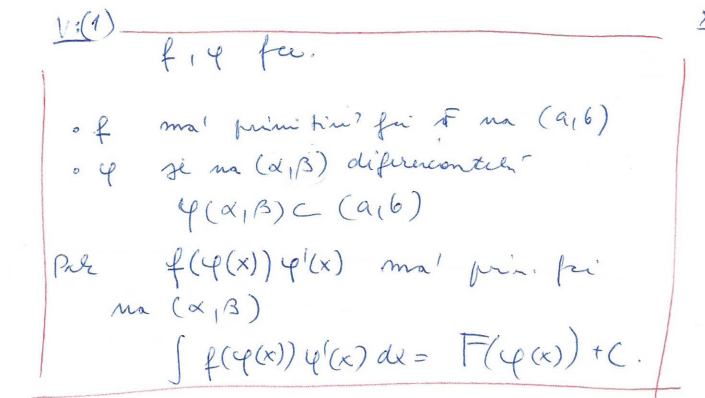 V:(1)
f, φ fce.
• f má primitivní fci F na (a,b)
• φ je na (α,β) diferencovatelná
φ(α,β) ⊂ (a,b)
Pak f(φ(x)) φ'(x) má prim. fci
na (α,β)
∫ f(φ(x)) φ'(x) dx = F(φ(x)) + C.